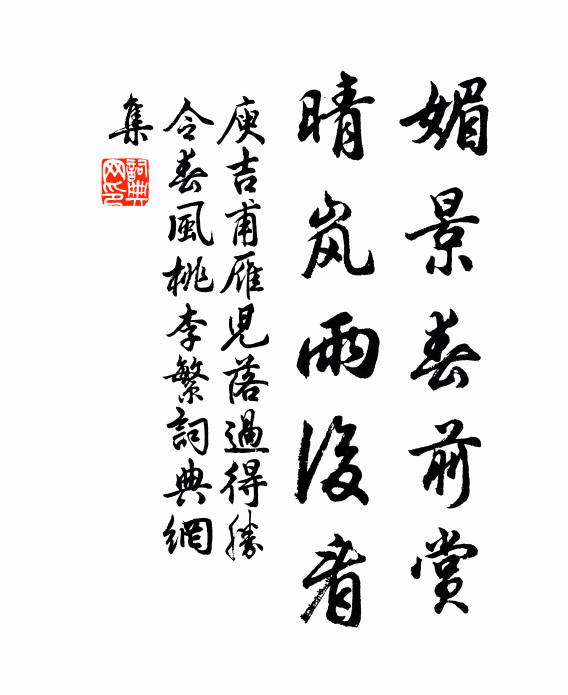 媚景春前赏
晴岚雨後看
庾吉甫雁兒落過得勝
令春風桃李繁詞典網
集
詞典
网印